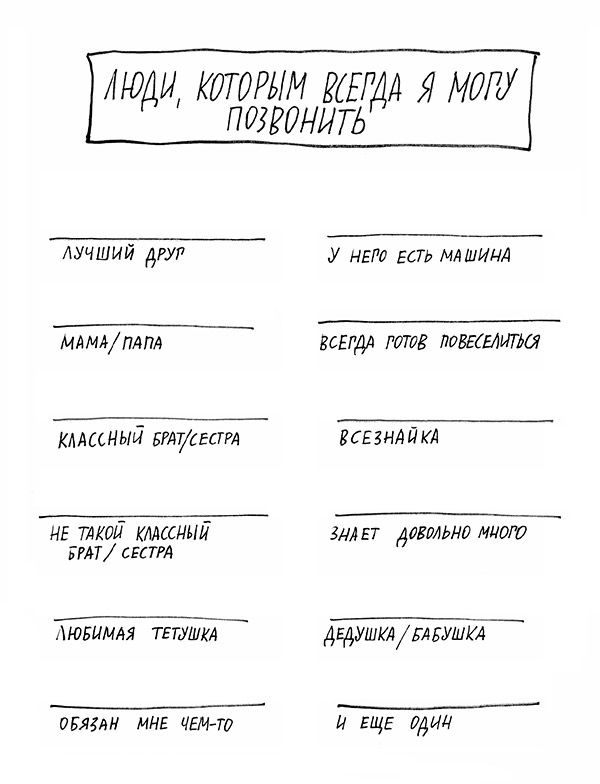 ЛЮДИ, КОТОРЫМ ВСЕГДА Я МОГУ
ПОЗВОНИТЬ
ЛУЧШИЙ ДРУГ
МАМА/ПАПА
КЛАССНЫЙ БРАТ/СЕСТРА
НЕ ТАКОЙ КЛАССНЫЙ
БРАТ/СЕСТРА
ЛЮБИМАЯ ТЕТУШКА
ОБЯЗАН МНЕ ЧЕМ-ТО
У НЕГО ЕСТЬ МАШИНА
ВСЕГДА ГОТОВ ПОВЕСЕЛИТЬСЯ
ВСЕЗНАЙКА
ЗНАЕТ ДОВОЛЬНО МНОГО
ДЕДУШКА/БАБУШКА
И ЕЩЕ ОДИН